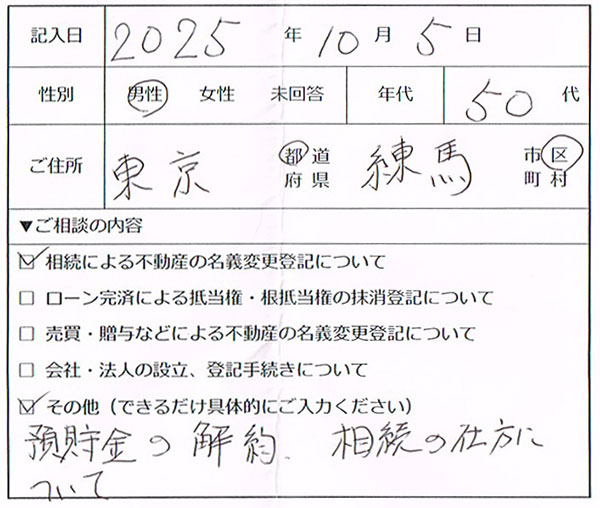 記入日 2025 年 10 月 5 日
性別 男性 女性 未回答 年代 50 代
ご住所 東京 都道府県 練馬 市区町村
▼ご相談の内容
☑ 相続による不動産の名義変更登記について
☐ ローン完済による抵当権・根抵当権の抹消登記について
☐ 売買・贈与などによる不動産の名義変更登記について
☐ 会社・法人の設立、登記手続きについて
☑ その他（できるだけ具体的にご入力ください）
預貯金の解約、相続の仕方に
ついて